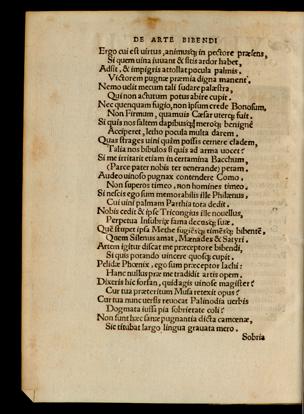 DE ARTE BIBENDI
Ergo cui est uirtus, animusq; in pectore præsens,
Si quem uina iuuant & sitis ardor habet,
Adsit, & impigris attollat pocula palmis.
Victorem pugnæ præmia digna manent.
Nemo udit mecum tali sudare palæstra,
Qui non actutum potus abire cupit.
Nec quenquam fugio, non ipsum crede Bonosum,
Non Firmum, quamuis Cæsar uterq; fuit.
Si quis nos saltem dapibusq; meroq; benigne
Acciperet, letho pocula multa darem.
Quas strages uini quàm possis cernere cladem,
Talia nos bibulos si quis ad arma uocet?
Si me irritaris etiam in certamina Bacchum,
(Parce pater nobis ter uenerande) petam.
Audeo uinoso pugnax contendere Como,
Non superos timeo, non homines timeo.
Si nescis ego sum memorabilis ille Philænus,
Cui uini palmam Parthia tota dedit.
Nobis cedit & ipse Tricongius ille nouellus,
Perpetua Insubriæ fama decusq; suæ.
Quẽ stupet ipsa Methe fugiẽsq; timẽsq; bibentẽ,
Quem Silenus amat, Mænades & Satyri.
Artem igitur discat me præceptore bibendi,
Si quis potando uincere quosq; cupit.
Pelidæ Phœnix, ego sum præceptor Iachi:
Hanc nullus præ me tradidit artis opem.
Dixeris hic forsan, quid agis uinose magister?
Cur tua præteritum Musa retexit opus?
Cur tua nunc uersus reuocat Palinodia uerbis
Dogmata iussa pia sobrietate coli?
Non sunt hæc sanè pugnantia dicta camœnæ,
Sic titubat largo lingua grauata mero.
Sobria